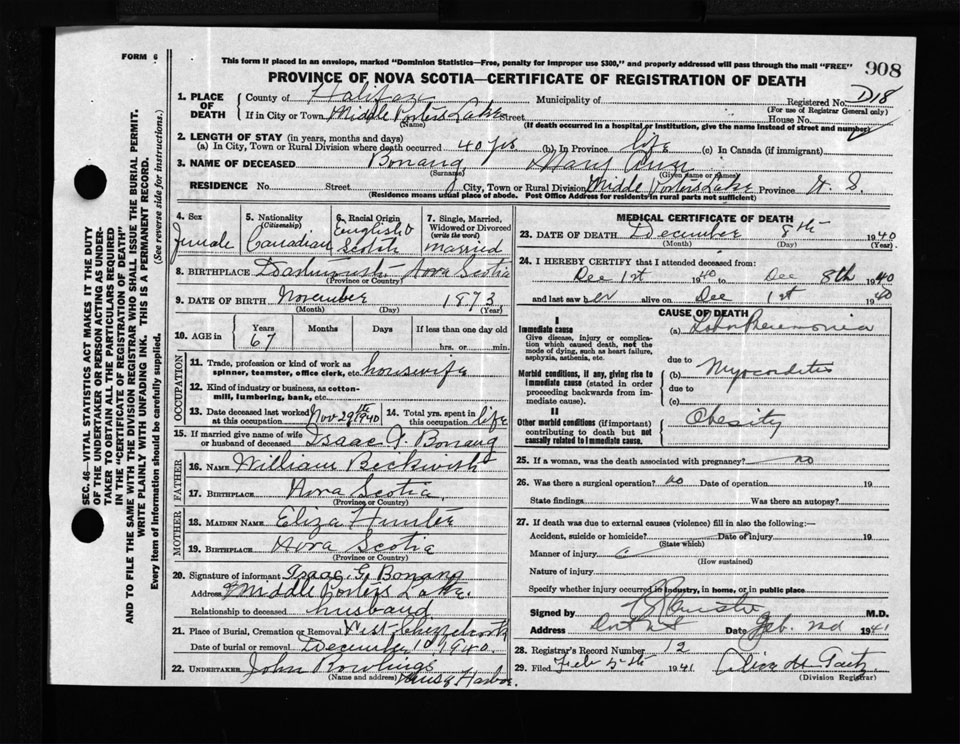 FORM 6
This form if placed in an envelope, marked "Dominion Statistics—Free, penalty for improper use $300," and properly addressed will pass through the mail "FREE"
908
PROVINCE OF NOVA SCOTIA—CERTIFICATE OF REGISTRATION OF DEATH
1. PLACE OF DEATH
County of Halifax Municipality of Registered No. D18
(For use of Registrar General only)
If in City or Town Middle Porters Lake Street House No.
(Name) (If death occurred in a hospital or institution, give the name instead of street and number)
2. LENGTH OF STAY (in years, months and days)
(a) In City, Town or Rural Division where death occurred 40 yrs (b) In Province life (c) In Canada (if immigrant)
3. NAME OF DECEASED Bonang Mary Ann
(Surname) (Given name or names)
RESIDENCE No. Street City, Town or Rural Division Middle Porters Lake Province N. S.
(Residence means usual place of abode. Post Office Address for residents in rural parts not sufficient)
4. Sex
female
5. Nationality
(Citizenship)
Canadian
6. Racial Origin
English &
Scotch
7. Single, Married,
Widowed or Divorced
(write the word)
married
8. BIRTHPLACE Dartmouth Nova Scotia
(Province or Country)
9. DATE OF BIRTH November 1873
(Month) (Day) (Year)
10. AGE in
Years Months Days If less than one day old
67 hrs. or min.
OCCUPATION
11. Trade, profession or kind of work as
spinner, teamster, office clerk, etc. housewife
12. Kind of industry or business, as cotton-
mill, lumbering, bank, etc.
13. Date deceased last worked
at this occupation Nov 29th 1940
14. Total yrs. spent in
this occupation life
15. If married give name of wife
or husband of deceased Isaac G. Bonang
FATHER
16. NAME William Beckwith
17. BIRTHPLACE Nova Scotia
(Province or Country)
MOTHER
18. MAIDEN NAME Eliza Hunter
19. BIRTHPLACE Nova Scotia
(Province or Country)
20. Signature of informant Isaac G. Bonang
Address Middle Porters Lake.
Relationship to deceased husband
21. Place of Burial, Cremation or Removal West Chezzetcook
Date of burial or removal December 10 1940.
22. UNDERTAKER John Rowlings
(Name and address) Musq Harbor.
MEDICAL CERTIFICATE OF DEATH
23. DATE OF DEATH December 8th 1940
(Month) (Day) (Year)
24. I HEREBY CERTIFY that I attended deceased from:
Dec 1st 1940 to Dec 8th 1940
and last saw her alive on Dec 1st 1940
CAUSE OF DEATH
I
Immediate cause
Give disease, injury or complica-
tion which caused death, not the
mode of dying, such as heart failure,
asphyxia, asthenia, etc.
(a) Lobar Pneumonia
due to
Morbid conditions, if any, giving rise to
immediate cause (stated in order
proceeding backwards from im-
mediate cause).
(b) Myocarditis
due to
(c)
II
Other morbid conditions (if important)
contributing to death but not
causally related to immediate cause.
Obesity
25. If a woman, was the death associated with pregnancy? no
26. Was there a surgical operation? no Date of operation 19
State findings Was there an autopsy?
27. If death was due to external causes (violence) fill in also the following:—
Accident, suicide or homicide? Date of injury 19
(State which)
Manner of injury
(How sustained)
Nature of injury
Specify whether injury occurred in industry, in home, or in public place
Signed by M.D.
Address Date Feb. 2nd 1941
28. Registrar's Record Number 12
29. Filed Feb 5th 1941
(Division Registrar)
SEC. 46—VITAL STATISTICS ACT MAKES IT THE DUTY
OF THE UNDERTAKER OR PERSON ACTING AS UNDER-
TAKER TO OBTAIN ALL THE PARTICULARS REQUIRED
IN THE "CERTIFICATE OF REGISTRATION OF DEATH"
AND TO FILE THE SAME WITH THE DIVISION REGISTRAR WHO SHALL ISSUE THE BURIAL PERMIT.
WRITE PLAINLY WITH UNFADING INK. THIS IS A PERMANENT RECORD.
Every item of information should be carefully supplied. (See reverse side for instructions.)